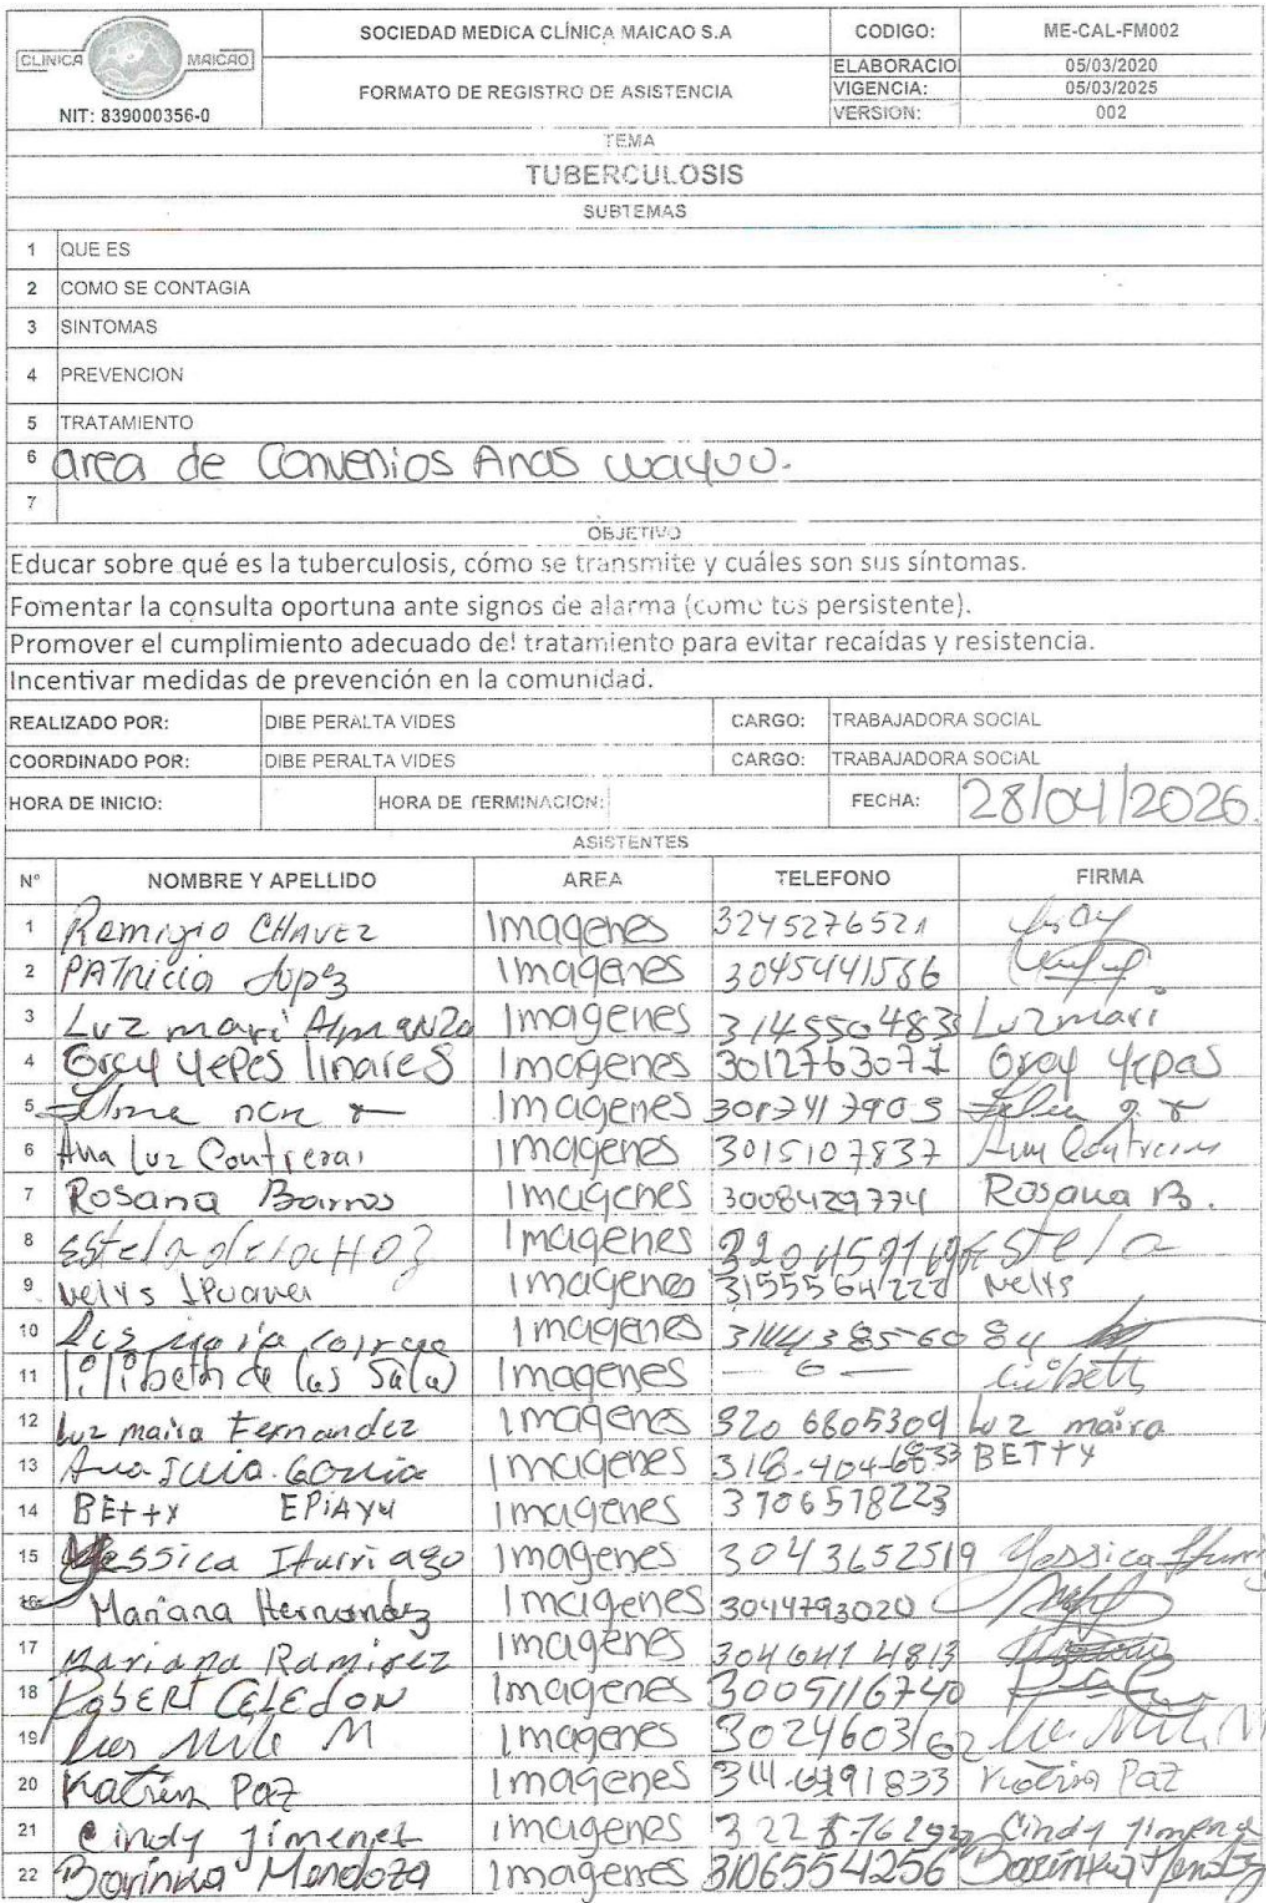 CLINICA MAICAO
NIT: 839000356-0
SOCIEDAD MEDICA CLÍNICA MAICAO S.A
CODIGO: ME-CAL-FM002
FORMATO DE REGISTRO DE ASISTENCIA
ELABORACIO 05/03/2020
VIGENCIA: 05/03/2025
VERSION: 002
TEMA
TUBERCULOSIS
SUBTEMAS
1 QUE ES
2 COMO SE CONTAGIA
3 SINTOMAS
4 PREVENCION
5 TRATAMIENTO
6 area de Convenios Anas wayuu.
7
OBJETIVO
Educar sobre qué es la tuberculosis, cómo se transmite y cuáles son sus síntomas.
Fomentar la consulta oportuna ante signos de alarma (como tos persistente).
Promover el cumplimiento adecuado del tratamiento para evitar recaídas y resistencia.
Incentivar medidas de prevención en la comunidad.
REALIZADO POR: DIBE PERALTA VIDES CARGO: TRABAJADORA SOCIAL
COORDINADO POR: DIBE PERALTA VIDES CARGO: TRABAJADORA SOCIAL
HORA DE INICIO: HORA DE TERMINACION: FECHA: 28/04/2026.
ASISTENTES
N° NOMBRE Y APELLIDO AREA TELEFONO FIRMA
1 Remigio CHAVEZ Imagenes 3245276521
2 PATRICIA Imagenes 3045441566
3 Luz mari Almanza Imagenes 3145504833 Luzmari
4 Grey Yepes linares Imagenes 3012763071 Grey Yepas
5 Imagenes
6 Ana Luz Contreras Imagenes 3015107837
7 Rosana Barros Imagenes 3008429774 Rosana B.
8 Estela de la HOZ Imagenes Estela
9 Nelys IPuana Imagenes Nelys
10 Imagenes
11 lilibeth de las Salas Imagenes — 0 —
12 Luz maira Fernandez Imagenes 320 6805309 Luz maira
13 Imagenes BETTY
14 BETTY EPiAYU Imagenes 3706578223
15 Yessica Iturriago Imagenes 3043652519 Yessica
16 Mariana Hernandez Imagenes 3044793020
17 Mariana Ramirez Imagenes 304 641 4813
18 RobERT CELEDON Imagenes 3009116740
19 Imagenes 3024603162
20 Katrin Paz Imagenes Paz
21 Cindy Jimenez Imagenes Cindy
22 Mendoza Imagenes 3106554256